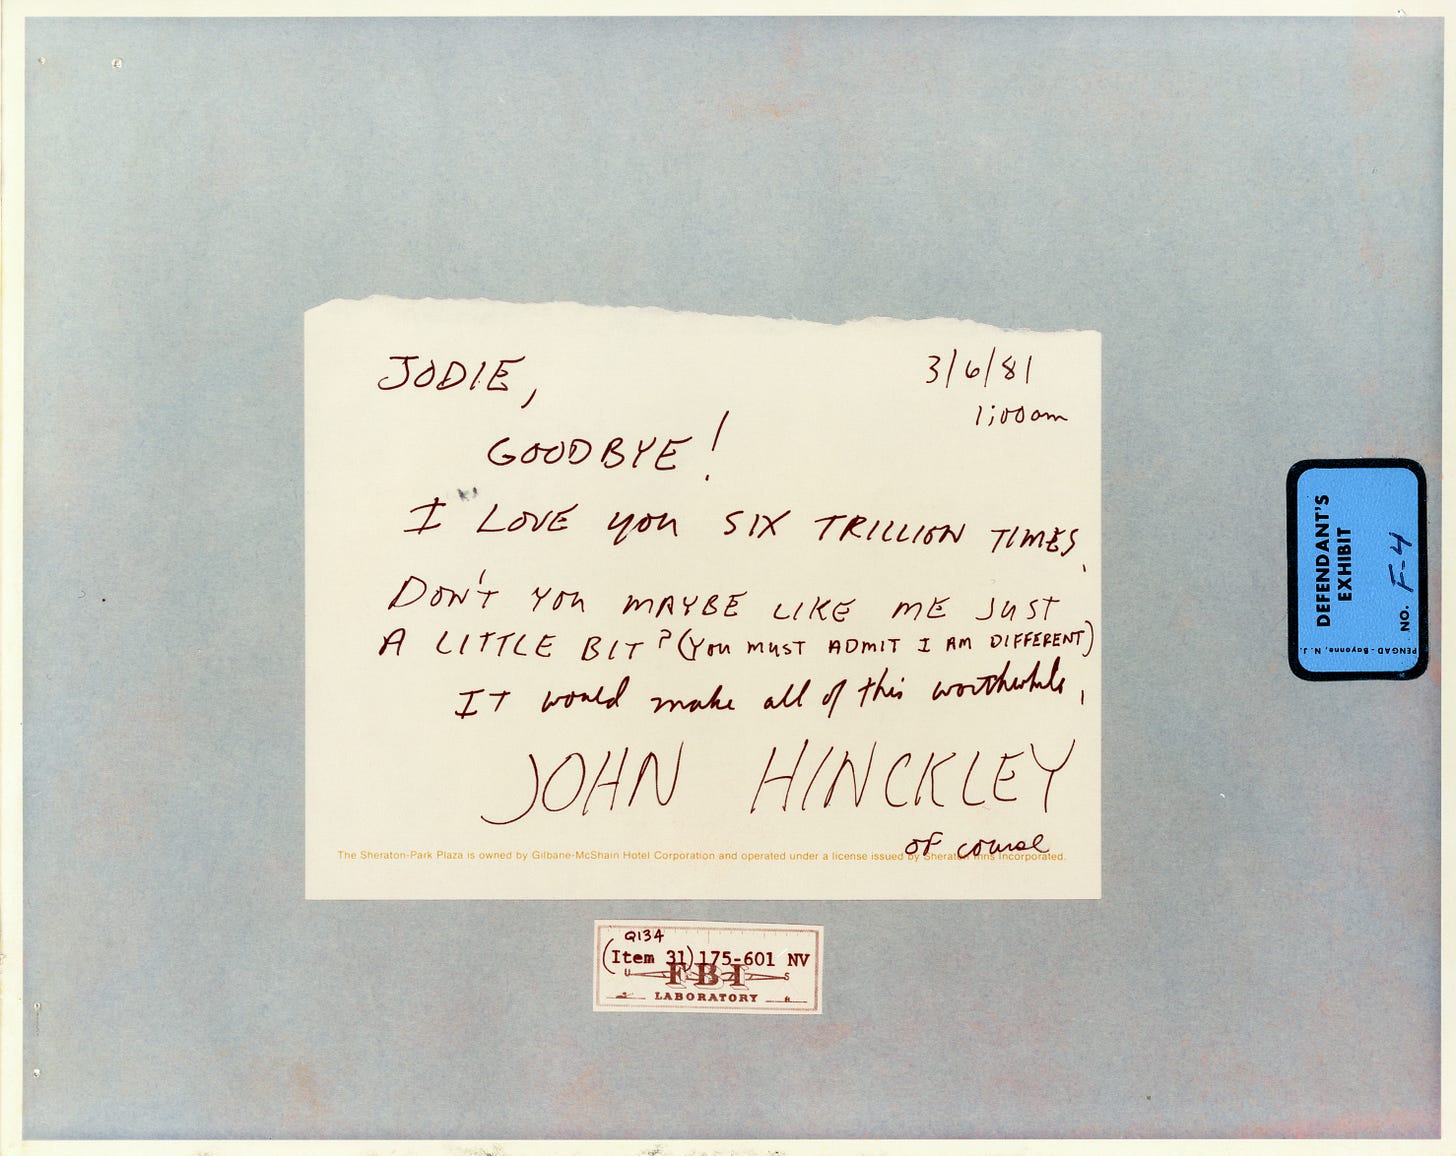 JODIE,
3/6/81
1;00am
GOODBYE!
I LOVE you SIX TRILLION TIMES.
DON'T YOU MAYBE LIKE ME JUST
A LITTLE BIT? (YOU MUST ADMIT I AM DIFFERENT)
IT would make all of this worthwhile.
JOHN HINCKLEY
of course
The Sheraton-Park Plaza is owned by Gilbane-McShain Hotel Corporation and operated under a license issued by Sheraton Inns Incorporated.
DEFENDANT'S
EXHIBIT
NO. F-4
PENGAD-Bayonne, N. J.
Q134
(Item 31) 175-601 NV
U S
FBI
LABORATORY